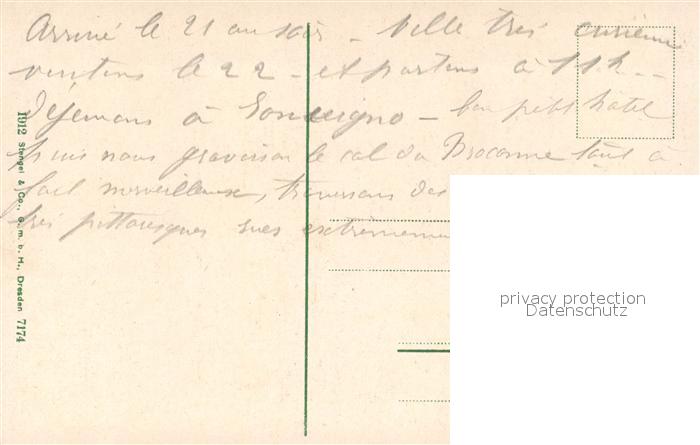 Arrivé le 21 au soir - Ville très curieuse
visitons le 22 - et partons à 11 h. -
Déjeunons à Primiero - bon petit hôtel
puis nous gravissons le col du Broconne tout à
fait merveilleux, traversons des
très pittoresques vues extrêmeme
1912 Stengel & Co., G. m. b. H., Dresden 7174
privacy protection
Datenschutz